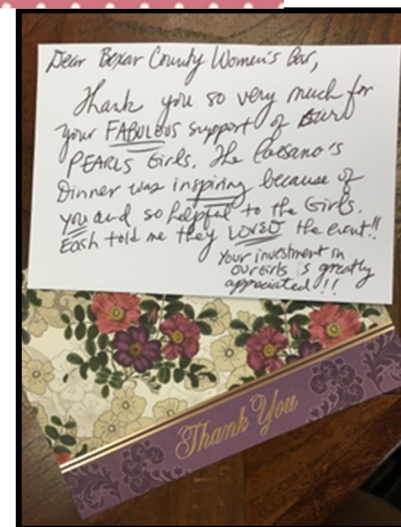 Dear Bexar County Women's Bar,
Thank you so very much for
your FABULOUS support of our
PEARLS Girls. The Paesano's
Dinner was inspiring because of
you and so helpful to the Girls.
Each told me they LOVED the event!!
Your investment in
our girls is greatly
appreciated!!
Thank You